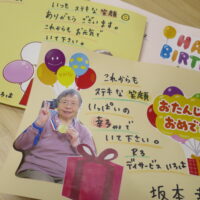 いつも ステキな 笑顔
ありがとう ございます。
これからも お元気で
いて 下さい。
HAPPY
BIRT
これからも
ステキな 笑顔
いっぱいの
おたんじ
おめで
いて 下さい。
デイサービス いちは
坂本